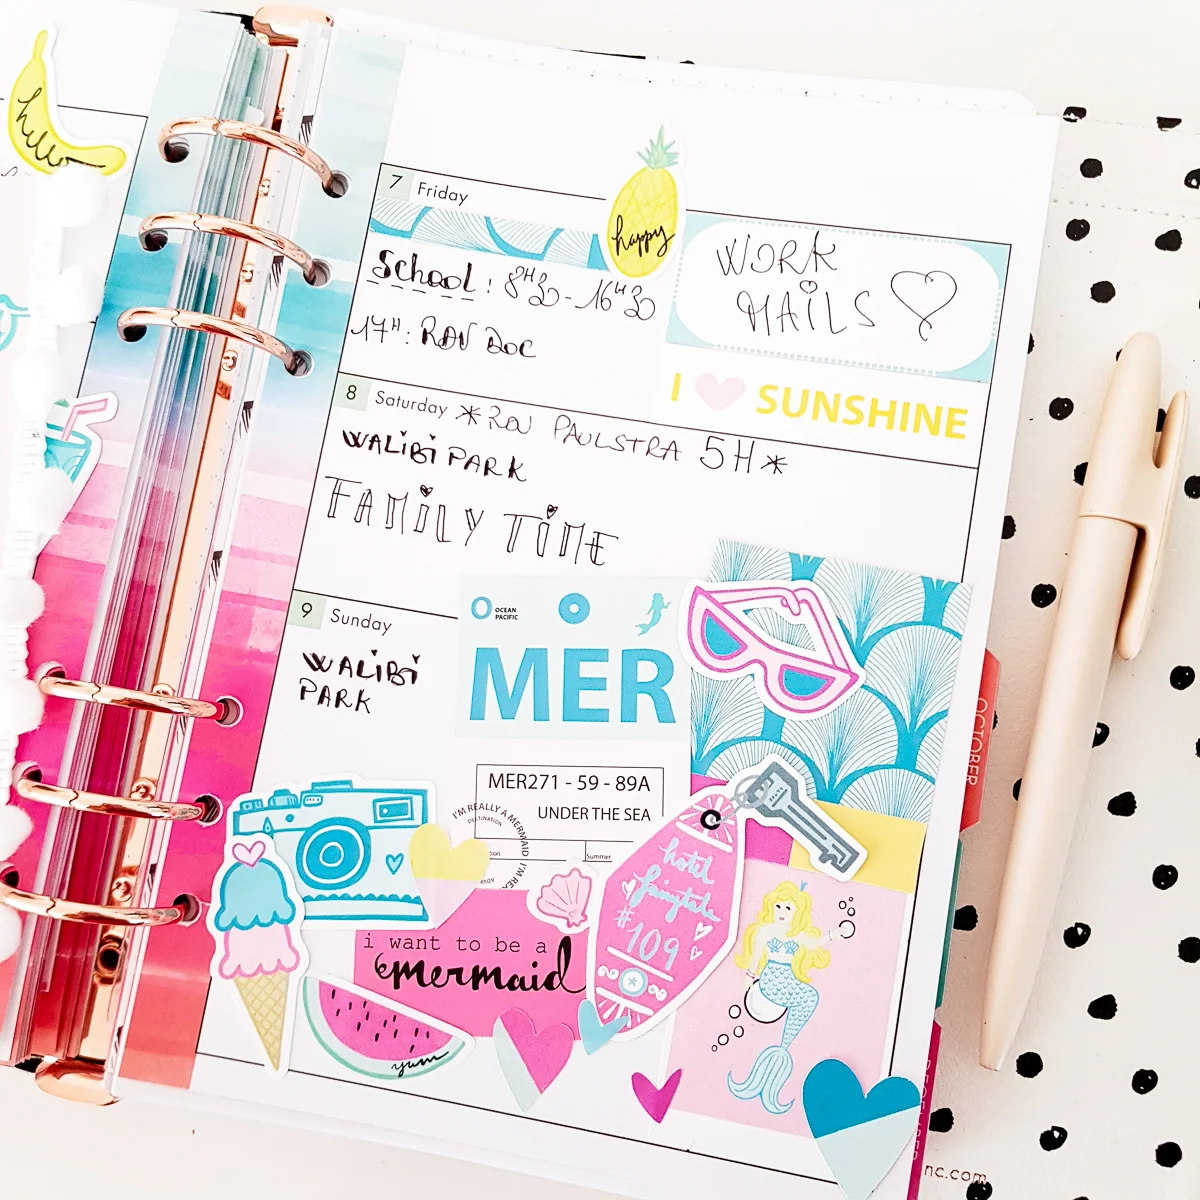 hello
7 Friday
happy
School : 8H30 - 16H30
17H : RDV DOC
WORK
MAILS
I SUNSHINE
8 Saturday *RDV PAULSTRA 5H*
WALIBI PARK
FAMILY TIME
9 Sunday
WALIBI
PARK
OCEAN
PACIFIC
MER
MER271 - 59 - 89A
UNDER THE SEA
I'M REALLY A MERMAID
DESTINATION
Summer
i want to be a
mermaid
hotel
fairytale
#109
yum
OCTOBER
DECEMBER
nc.com